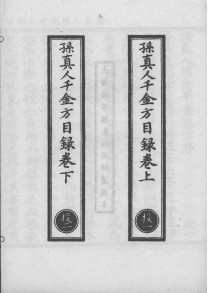 孫真人千金方目録卷上
孫真人千金方目録卷下